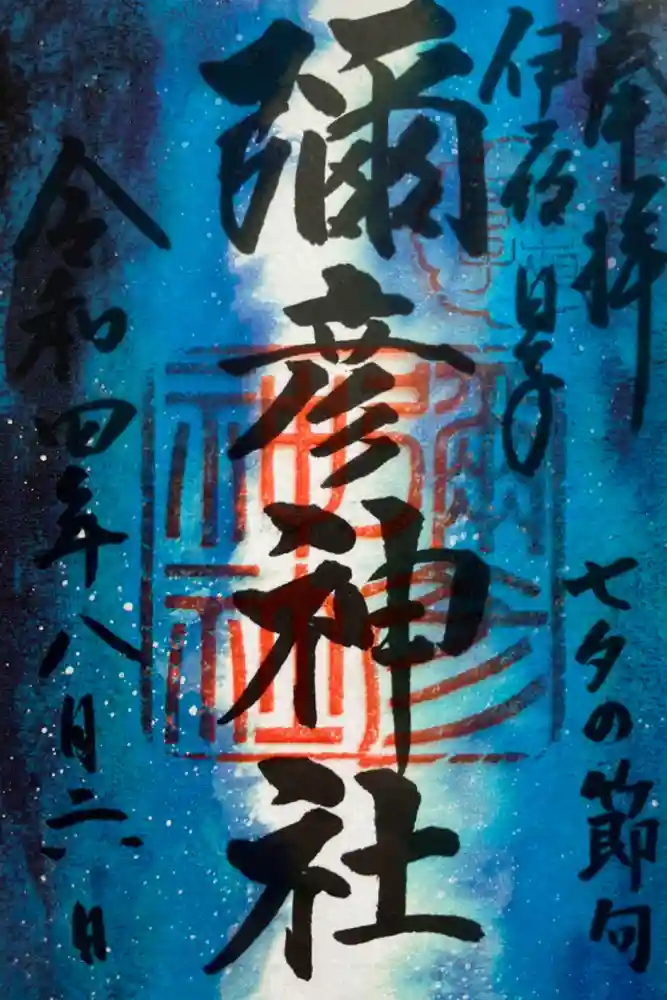 奉拝
七夕の節句
伊夜日子
彌彦神社
令和四年八月二日